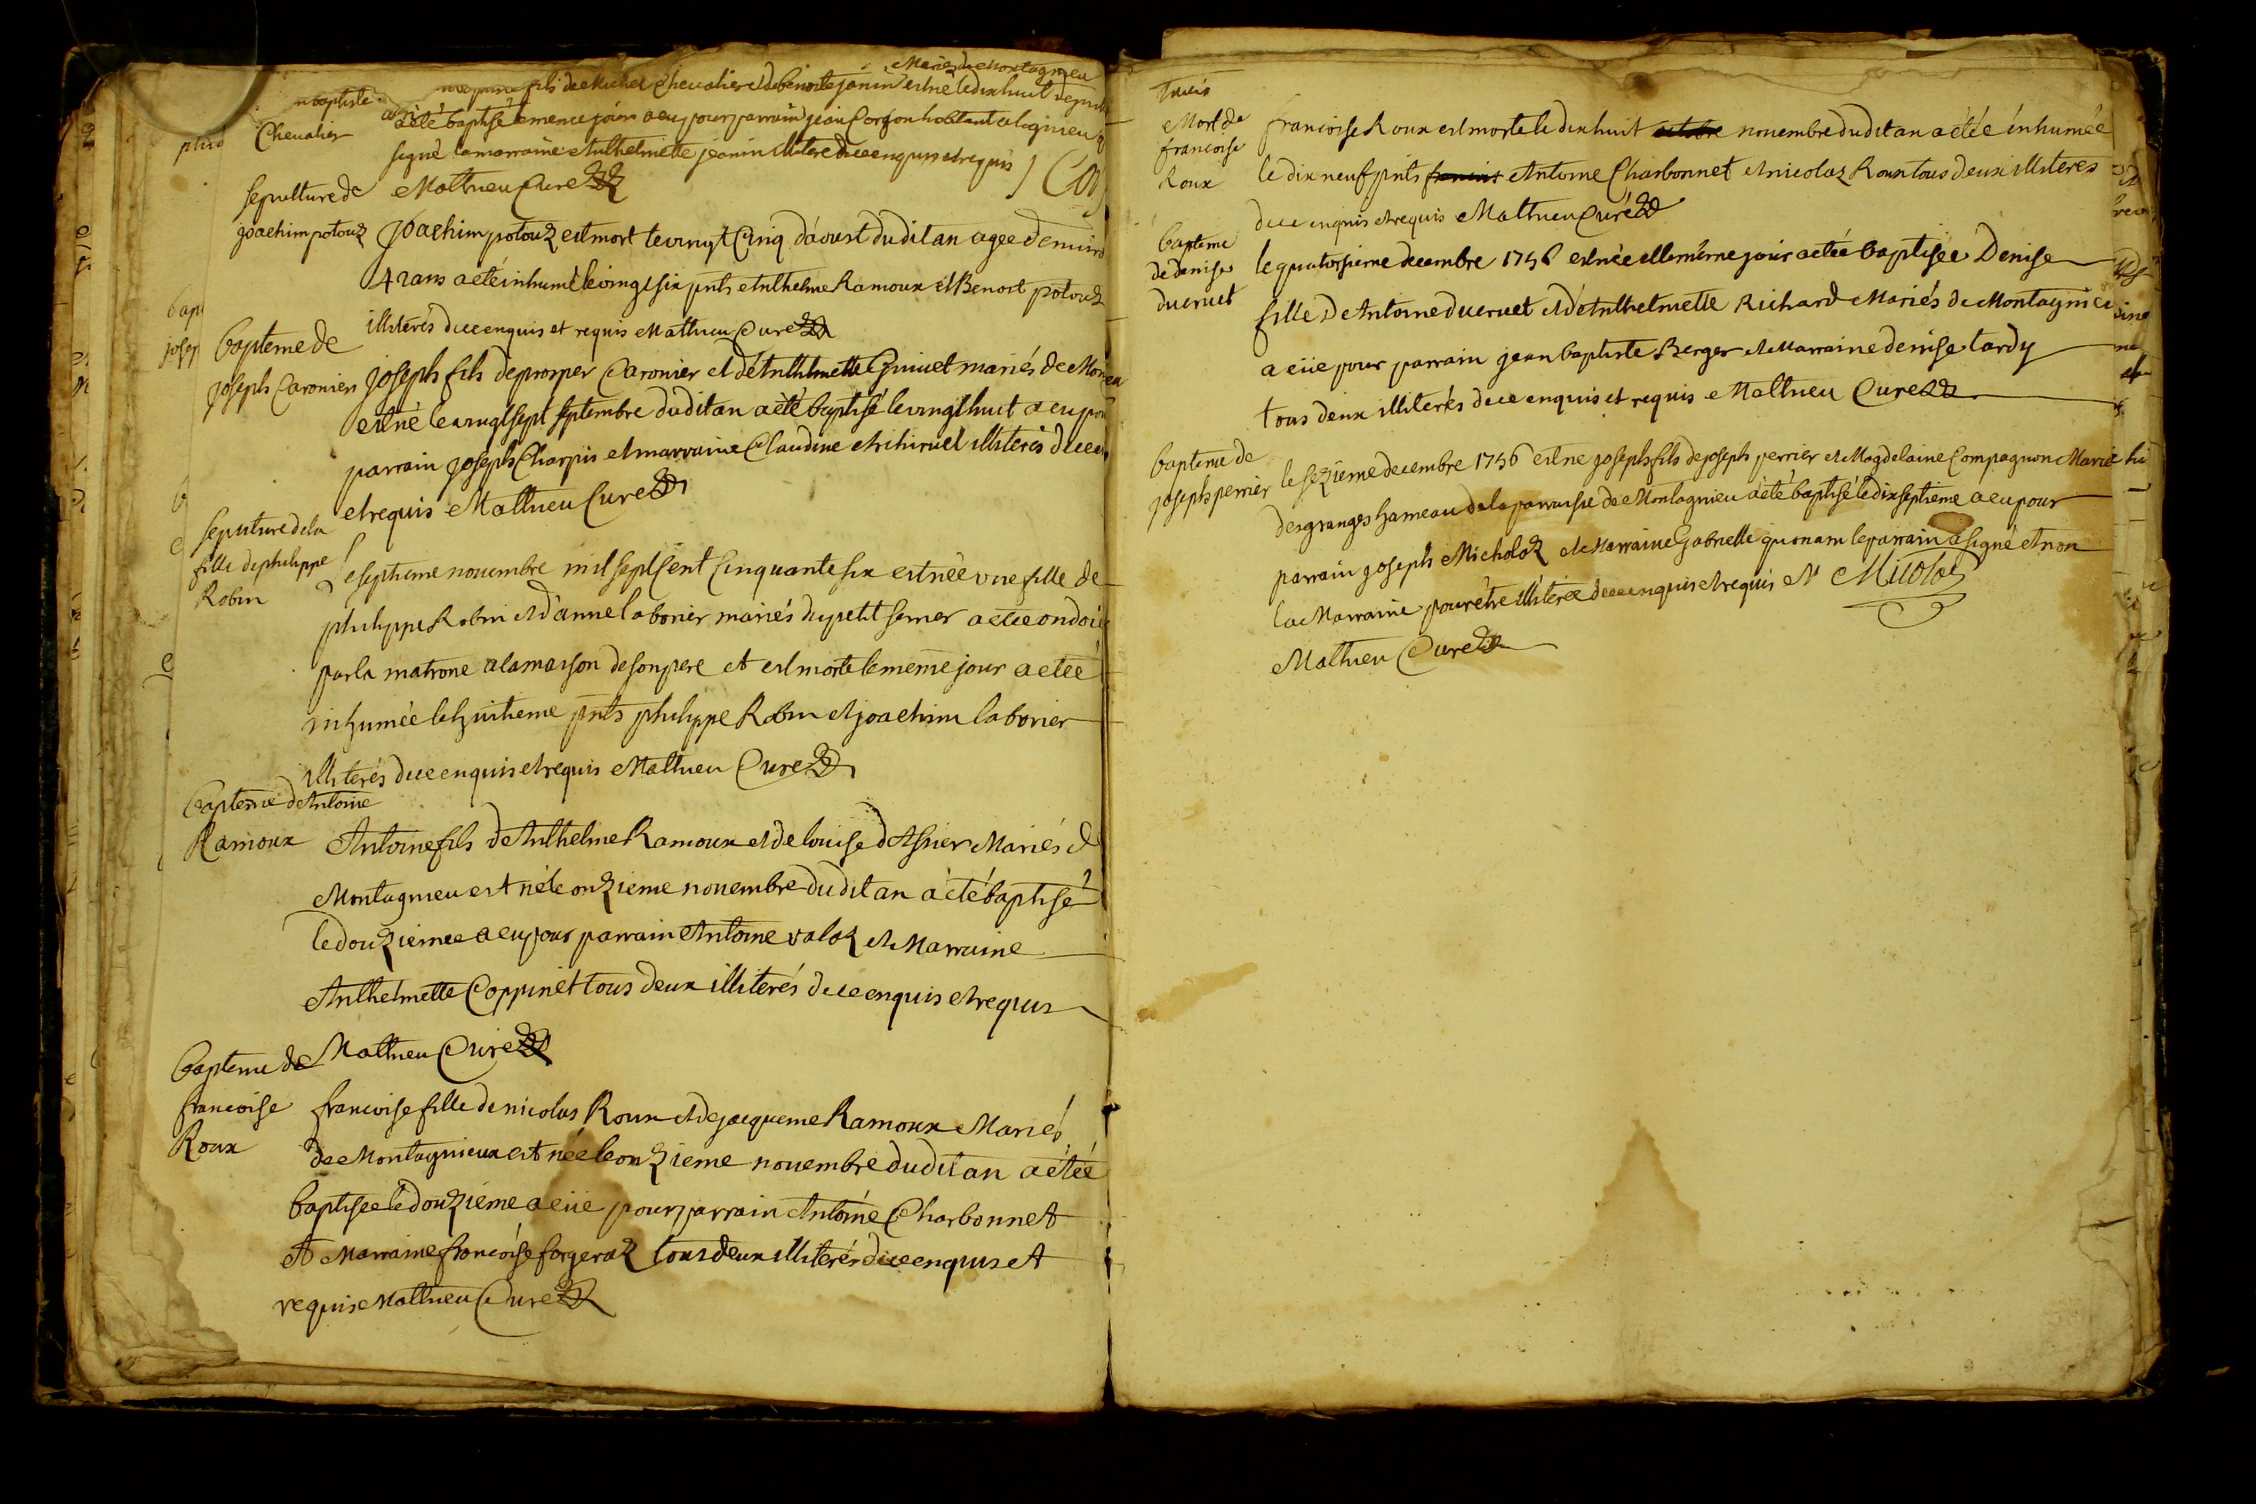 Mariés de Montagnieu
n baptiste
fils de Michel Chevalier et de benoite janin est né le dix huit
Chevalier
a èté baptisé le meme jour a eu pour parrain jean Corjon habitant a logineu
signé la marraine Anthelmette jeanin illiteree de ce enquis et requis
Mathieu Curé
sepulture de
joachim potouz
joachim potouz est mort le vingt Cinq d'aoust du dit an agée denuiro
42 ans a eté inhumé le vingt six pnts Anthelme Ramoux et Benoit potouz
illiterés de ce enquis et requis Mathieu Curé
bapteme de
joseph Caronier
joseph fils de prosper Caronier et d'Anthelmette Guiuet mariés de Mon
est né le vingt sept septembre du dit an a èté baptisé le vingt huit a eu pour
parrain joseph Charpin et marraine Claudine illiterés de ce en
et requis Mathieu Curé
sepulture de la
fille de philippe
Robin
le septieme nouembre mil sept sent cinquante six est née une fille de
philippe Robin et d'anne laborier mariés du petit semer a etée ondoié
par la matrone a la maison de son pere et est morte le meme jour a etée
inhumée le huitieme pnts philippe Robin et joachim laborier
illiterés de ce enquis et requis Mathieu Curé
bapteme d'Antoine
Ramoux
Antoine fils d'Anthelme Ramoux et de louise d'Asnier Mariés d
Montagnieu est né le onzieme nouembre du dit an a èté baptisé
le douziemee a eu pour parrain Antoine valoz et Marraine
Anthelmette Coppinet tous deux illiterés de ce enquis et requis
Mathieu Curé
bapteme de
francoise
Roux
francoise fille de nicolas Roux et de jacqueme Ramoux Mariés
de Montagnieux est née le onzieme nouembre du dit an a étée
baptisée le douzieme a eüe pour parrain Antoine Charbonnet
et Marraine francoise forgeraz tous deux illiterés de ce enquis et
requis Mathieu Curé
Mort de
francoise
Roux
francoise Roux est morte le dix huit octobre nouembre du dit an a étée inhumée
le dix neuf pnts Antoine Charbonnet et nicolaz Roux tous deux illiteres
de ce enquis et requis Mathieu Curé
bapteme
de denise
ducruet
le quatorsieme decembre 1756 est née et le même jour a etée baptisée Denise
fille d'Antoine ducruet et d'Anthelmette Richard Mariés de Montagnieu
a eüe pour parrain jean baptiste Berger et Marraine denise tardy
tous deux illiterés de ce enquis et requis Mathieu Curé
bapteme de
joseph perrier
le sezieme decembre 1756 est né joseph fils de joseph perrier et Magdelaine Compagnon Mariés
des granges hameau de la parroisse de Montagnieu a èté baptisé le dix septieme a eu pour
parrain joseph Micholoz et Marraine Gabrielle quonam le parrain a signé et non
la Marraine pour être illiterée de ce enquis et requis M Micoloz
Mathieu Curé